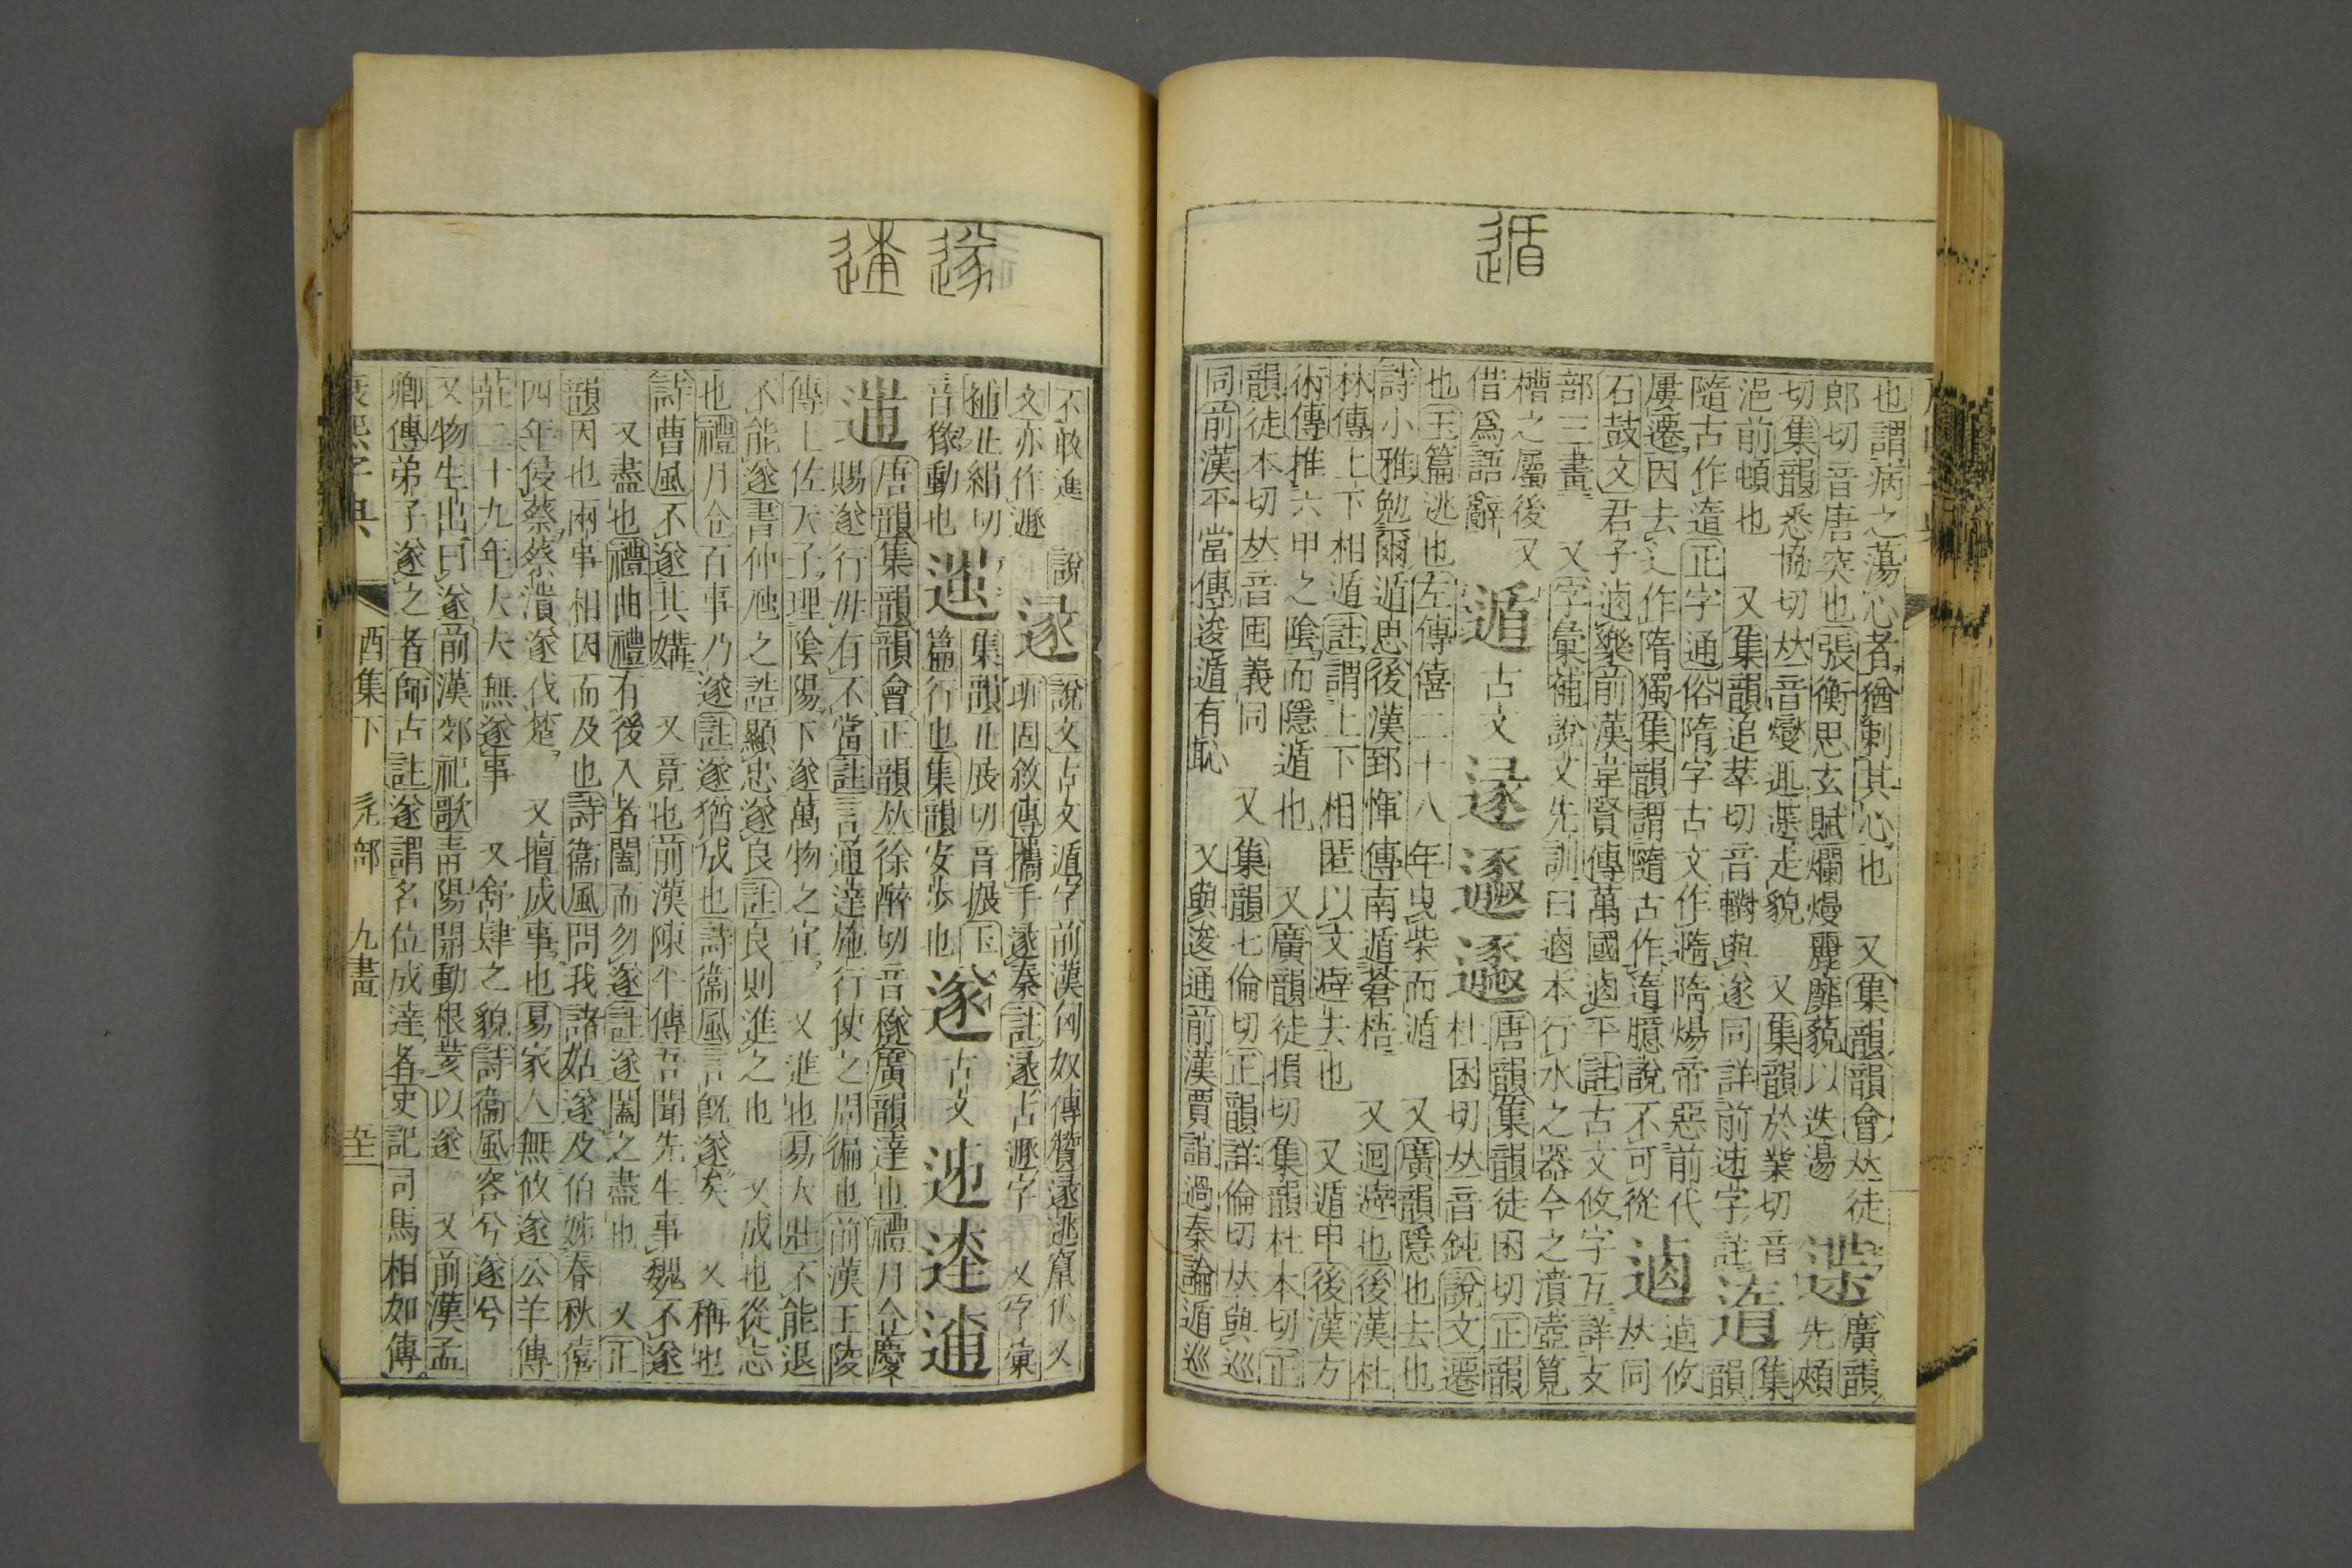 遁
也謂病之蕩心者猶刺其心也 又集韻韻會𠀤徒
郎切音唐突也張衡思玄賦爛熳麗靡藐以迭逷
廣韻
先頰
切集韻悉協切𠀤音燮 走貌 又集韻於業切音
浥前頓也 又集韻追萃切音轛與遂同詳前 字註
遀
集
韻
隨古作遀正字通俗隋字古文作 隋煬帝惡前代
屢遷因去辵作隋獨集韻謂隨古作遀臆說不可從
逌攸
𠀤同
石鼓文君子逌樂前漢韋賢傳萬國逌平註古文攸字互詳攴
部三畫 又字彙補說文先訓曰逌本行水之器今之濆壺筧
槽之屬後又
借爲語辭
遁
古文
唐韻集韻徒困切正韻
杜困切𠀤音鈍說文遷
也玉篇逃也左傳僖二十八年曳柴而遁 又廣韻隱也去也
詩小雅勉爾遁思後漢郅惲傳南遁蒼梧 又迴避也後漢杜
林傳上下相遁註謂上下相匿以文避去也 又遁甲後漢方
術傳推六甲之陰而隱遁也 又廣韻徒損切集韻杜本切正
韻徒本切𠀤音囤義同 又集韻七倫切正韻詳倫切𠀤與巡
同前漢平當傳逡遁有恥 又與逡通前漢賈誼過秦論遁巡
遂 達
不敢進 說
文亦作遯
說文古文遁字前漢匈奴傳贊遂逃竄伏又
班固敘傳攜手遂秦註遂古遯字 又字彙
補止絹切
音㺄動也
集韻止展切音搌玉
篇行也集韻安步也
遂
古文
唐韻集韻韻會正韻𠀤徐醉切音穟廣韻達也禮月令慶
賜遂行毋有不當註言通達施行使之周徧也前漢王陵
傳上佐天子理陰陽下遂萬物之宜 又進也易大壯不能退
不能遂書仲虺之誥顯忠遂良註良則進之也 又成也從志
也禮月令百事乃遂註遂猶成也詩衞風言旣遂矣 又稱也
詩曹風不遂其媾 又竟也前漢陳平傳吾聞先生事魏不遂
又盡也禮曲禮有後入者闔而勿遂註遂闔之盡也 又正
韻因也兩事相因而及也詩衞風問我諸姑遂及伯姊春秋僖
四年侵蔡蔡潰遂伐楚 又擅成事也易家人無攸遂公羊傳
莊二十九年大夫無遂事 又舒肆之貌詩衞風容兮遂兮
又物生出曰遂前漢郊祀歌靑陽開動根荄以遂 又前漢孟
卿傳弟子遂之者師古註遂謂名位成達者史記司馬相如傳
康熙字典 酉集下 辵部 九畫